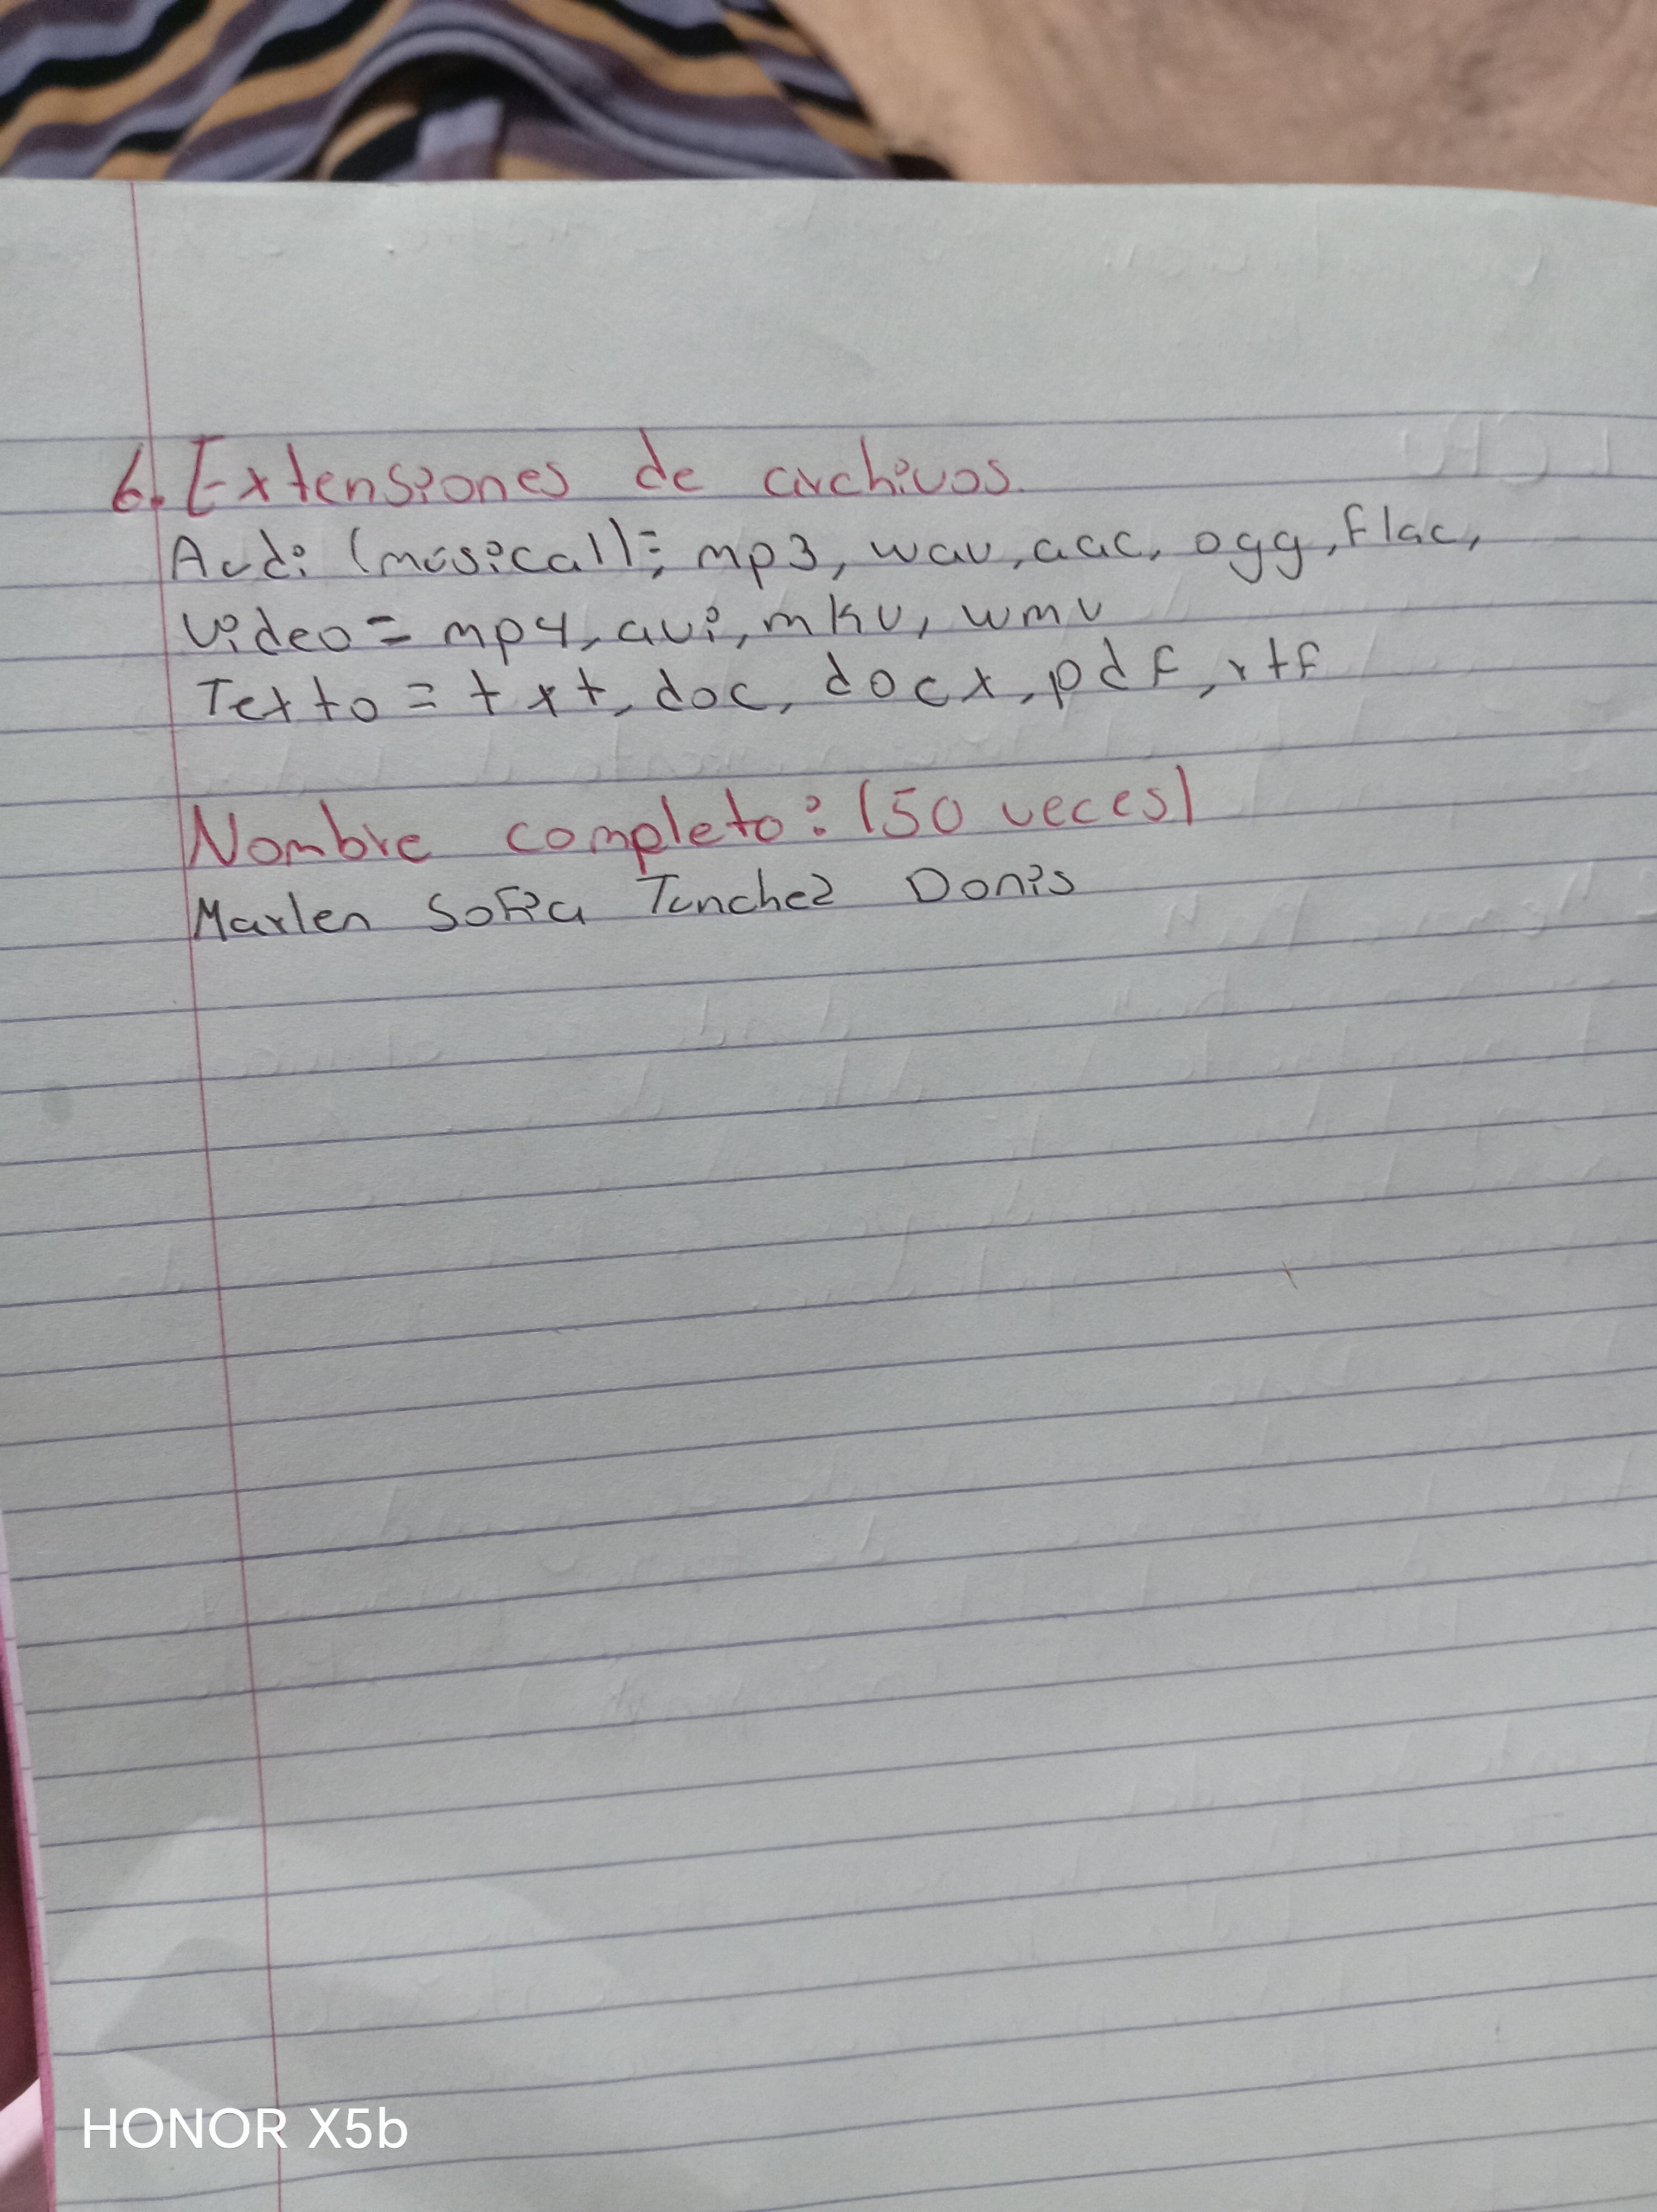 6. Extensiones de archivos.
Audi (musical): mp3, wav, aac, ogg, flac,
video = mp4, avi, mkv, wmv
Texto = txt, doc, docx, pdf, rtf
Nombre completo: (50 veces)
Marlen Sofia Tunchez Donis
HONOR X5b